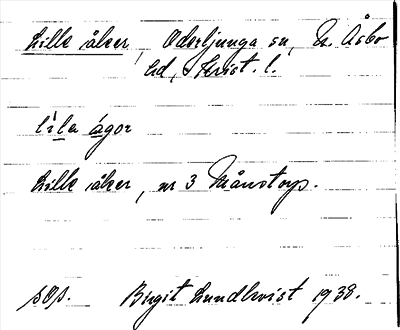 Lille åker, Oderljunga sn, N. Åsbo
hd, Krist. l.
lila ågor
Lille åker, nr 3 Månstorp.
sOp. Birgit Lundkvist 1938.